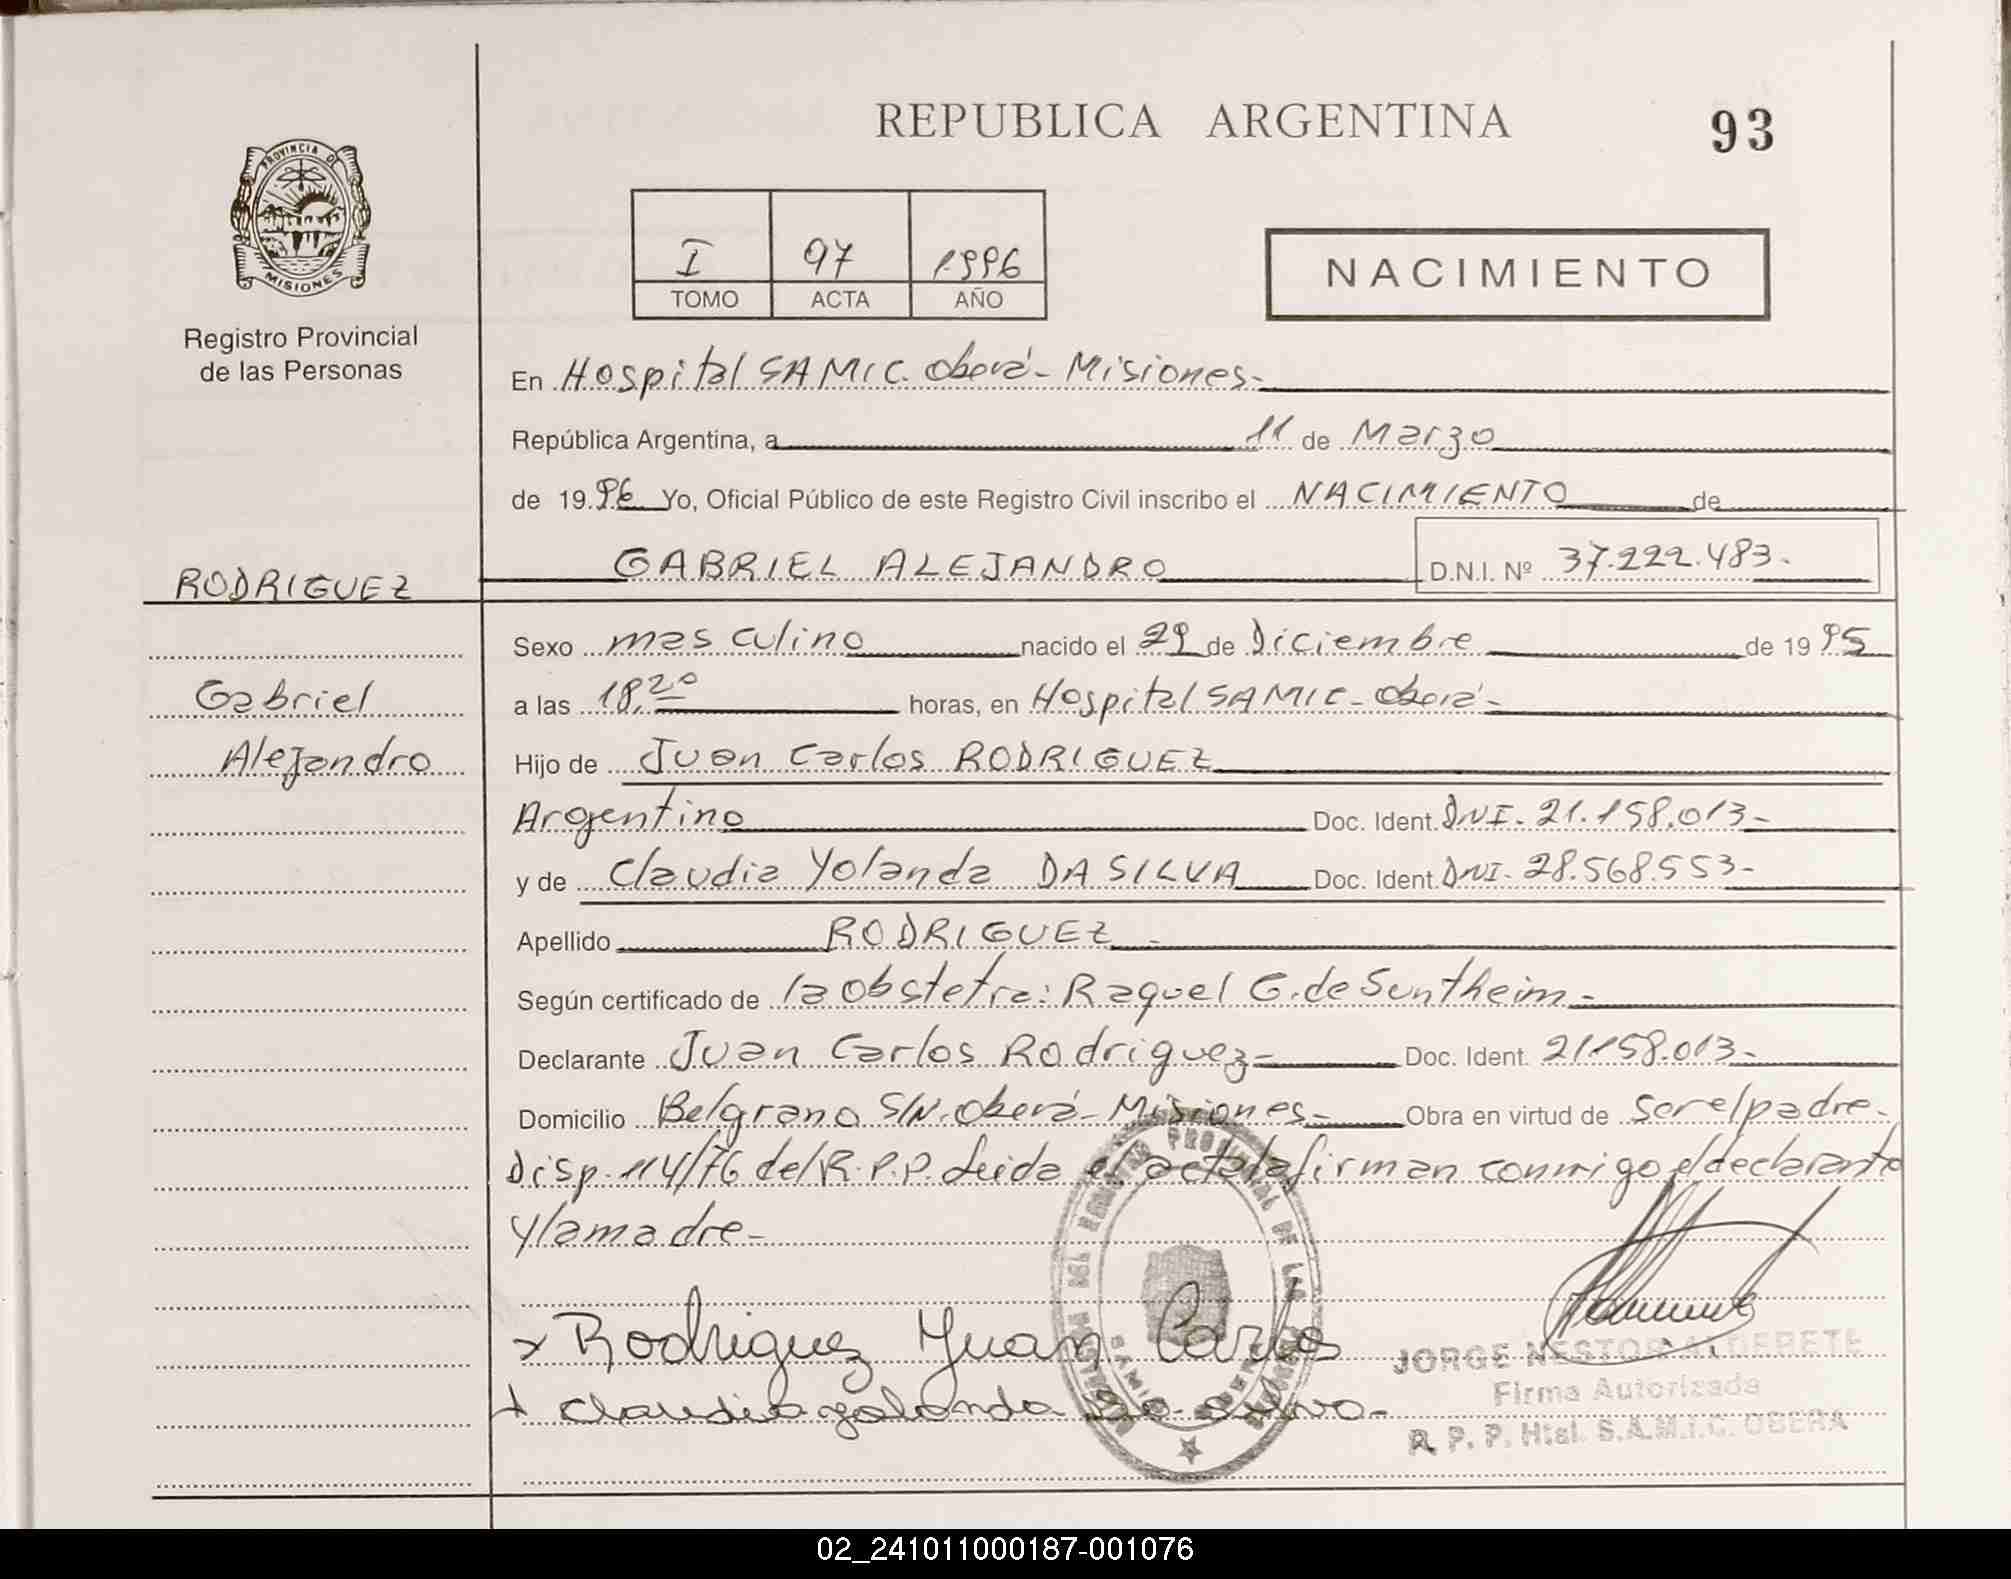 REPUBLICA ARGENTINA
93
PROVINCIA DE
MISIONES
Registro Provincial
de las Personas
I 97 1996
TOMO ACTA AÑO
NACIMIENTO
En Hospital SAMIC. Oberá- Misiones-
República Argentina, a 11 de Marzo
de 1996 Yo, Oficial Público de este Registro Civil inscribo el NACIMIENTO de
RODRIGUEZ
GABRIEL ALEJANDRO D.N.I. Nº 37.222.483-
Gabriel
Alejandro
Sexo masculino nacido el 29 de Diciembre de 1995
a las 18,20 horas, en Hospital SAMIC- Oberá-
Hijo de Juan Carlos RODRIGUEZ
Argentino Doc. Ident. DNI- 21.158.013-
y de Claudia Yolanda DA SILVA Doc. Ident. DNI- 28.568.553-
Apellido RODRIGUEZ -
Según certificado de la Obstetra: Raquel G. de Suntheim-
Declarante Juan Carlos Rodriguez- Doc. Ident. 21158.013-
Domicilio Belgrano S/N. Oberá- Misiones- Obra en virtud de ser el padre-
Disp. 114/76 del R.P.P. Leida el acta la firman conmigo el declarante
y la madre-
x Rodriguez Juan Carlos
+ Claudia yolanda Da Silva-
JORGE NESTOR ALDERETE
Firma Autorizada
R. P. P. Htal. S.A.M.I.C. OBERA
02_241011000187-001076